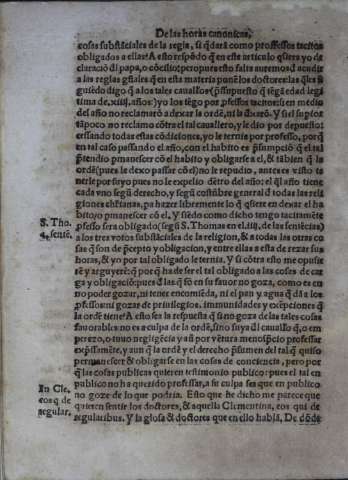 De las horas canonicas,
cosas substãciales de la regla, si q̃dará como professos tacitos
obligados a ellas? A esto respõdo q̃ en este articulo q̃siera yo de
claració dl papa, o cõcilio: pero pues esto falta auremos d̃ acudir
a las reglas gñales q̃ en esta materia ponẽ los doctores: las q̃les si
guiẽdo digo q̃ a los tales caualłos (p̃supuesto q̃ tẽgã edad legi
tima de, xiiij, años:) yo los tẽgo por, p̃fessos tacitos: si en medio
del año no reclamarõ a dexar la ordẽ, ni la dexarõ. Y si el supior
tãpoco no reclamo cõtra el tal cauallero, y le dio por depuesto:
cessando todas estas cõdiciones, yo le ternia por professo, porq̃
en tal caso passando el año, con el habito es p̃sumpciõ q̃ el tal
p̃tendio p̃manescer cõ el habito y obligarse a el, & tãbien q̃ la
ordẽ (pues le dexo passar cõ el) no le repudio, antes es visto te
nerle por suyo pues no le expelio dẽtro del año: el q̃l año tiene
cada vno segũ derecho, y segũ costũbre general d̃ todas las reli
giones ch̃ianas, pa hazer libremente lo q̃ q̃siere en dexar el ha
bito, o p̃manescer cõ el, Y siẽdo como dicho tengo tacitamẽte
p̃fesso sera obligado (segũ S. Thomas en el. iiij, de las sentẽcias)
S. Tho.
4. sentẽ.
a los tres votos substãciales de la religion, & a todas las otras co
sas q̃ son de p̃cepto y obligacion, y entre ellas a esta de rezar sus
horas, & yo por tal obligado le ternia. Y si cõtra esto me opusie
rẽ y arguyerẽ: q̃ por q̃ ha de ser el tal obligado a las cosas de car
ga y obligaciõ: pues d̃ las q̃ sõ en su fauor no goza, como es en
no poder gozar, ni tener encomiẽda, ni el pan y agua q̃ dã a los
p̃fessos: ni gozar de priuilegios, immunidades y exẽpciones q̃
la ordẽ tiene? A esto sea la respuesta q̃ si no goza de las tales cosas
fauorables no es a culpa de la ordẽ, sino suya dl cauallo q̃, o em
perezo, o tuuo negligẽcia y assi por vẽtura menospicio professar
exp̃ssamẽte, y aun q̃ la ordẽ y el derecho p̃sumen del tal q̃ quiso
permanescer & obligarse en las cosas de conciencia, pero por
q̃ las cosas publicas quieren testimonio publico: pues el tal en
publico no ha querido professar, a su culpa sea que en publico
no goze de lo que podria. Esto que he dicho me parece que
In Cle.
eos q̃ de
regular.
quieren sentir los doctores, & aquella Clementina, eos qui de
regularibus. Y la glosa & doctores que en ello hablã, De dõde